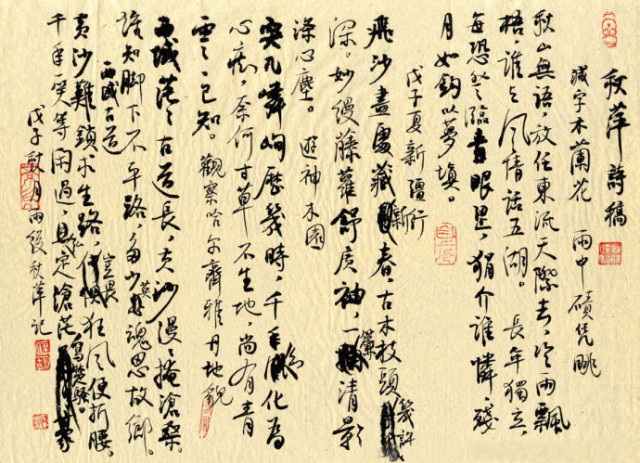 秋萍詩稿
減字木蘭花 雨中磧凭眺
秋山無語,放任東流天際去,冷雨飄
梧,誰與風情話五湖。長年獨立,
每恐登臨青眼,狷介誰憐,殘
月如鈎夢填。
戊子夏新疆行
飛沙盡處藏新春,古木枝頭幾許
深。妙縵藤蘿舒廣袖,一簾清影
澡心塵。遊神木園
突兀嶙峋歷幾時,千年化為
心痴,奈何寸草不生地,尚有青
雲已知。觀察哈尔齊雅丹地貌
西域茫茫古道長,黃沙漫漫掩滄桑。
誰知脚下不平路,多少英魂思故鄉。
西域古道
黃沙難鎖求生路,豈畏狂風便折腰,
千年一笑等閑過,定滄茫寫楚騷。
戊子月雨後秋萍記